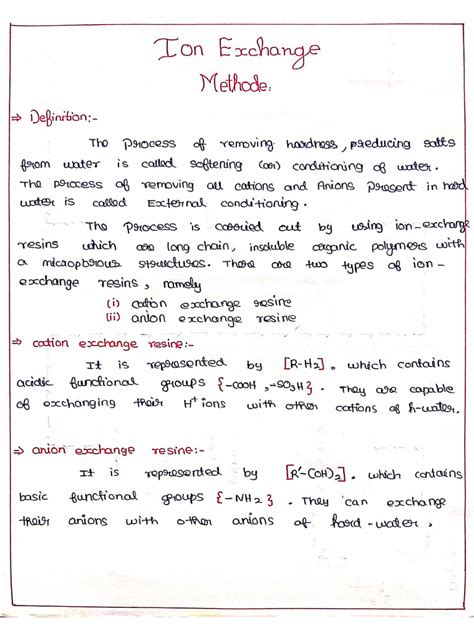 Ion Exchange
Methode:
⇒ Definition:-
The process of removing hardness, producing salts
from water is called softening (or) conditioning of water.
The process of removing all cations and Anions Present in hard
water is called External conditioning.
The Process is carried out by using ion-exchange
resins which are long chain, insoluble organic polymers with
a microphrous structures. There are two types of ion-
exchange resins, namely
(i) cation exchange resine
(ii) anion exchange resine
⇒ cation exchange resine:-
It is represented by [R-H2]. which contains
acidic functional groups {-COOH, -SO3H}. They are capable
of exchanging their H+ ions with other cations of h-water.
⇒ anion exchange resine:-
It is represented by [R'-(OH)2]. which contains
basic functional groups {-NH2}. They can exchange
their anions with other anions of hard-water.